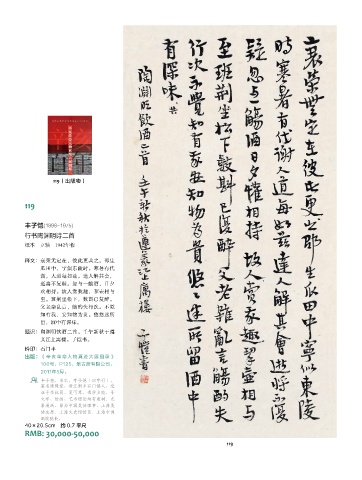 119 | 出版物 |
119
丰子恺(1898-1975)
行书陶渊明诗二首
纸本 立轴 1942年作
释文：衰荣无定在，彼此更共之。邵生
瓜田中，宁似东陵时。寒暑有代
谢，人道每如兹。达人解其会，
逝将不复疑。忽与一觞酒，日夕
欢相持。故人赏我趣，挈壶相与
至。班荆坐松下，数斟已复醉。
父老杂乱言，觞酌失行次。不觉
知有我，安知物为贵。悠悠迷所
留，酒中有深味。
40×20.5cm 约 0.7 平尺
RMB: 30,000-50,000
衰荣无定在彼此更共之邵生瓜田中宁似东陵
时寒暑有代谢人道每如兹达人解其会逝将不复
疑忽与一觞酒日夕欢相持 故人赏我趣挈壶相与
至班荆坐松下数斟已复醉父老杂乱言觞酌失
行次不觉知有我安知物为贵悠悠迷所留酒中
有深味
陶渊明饮酒二首
119